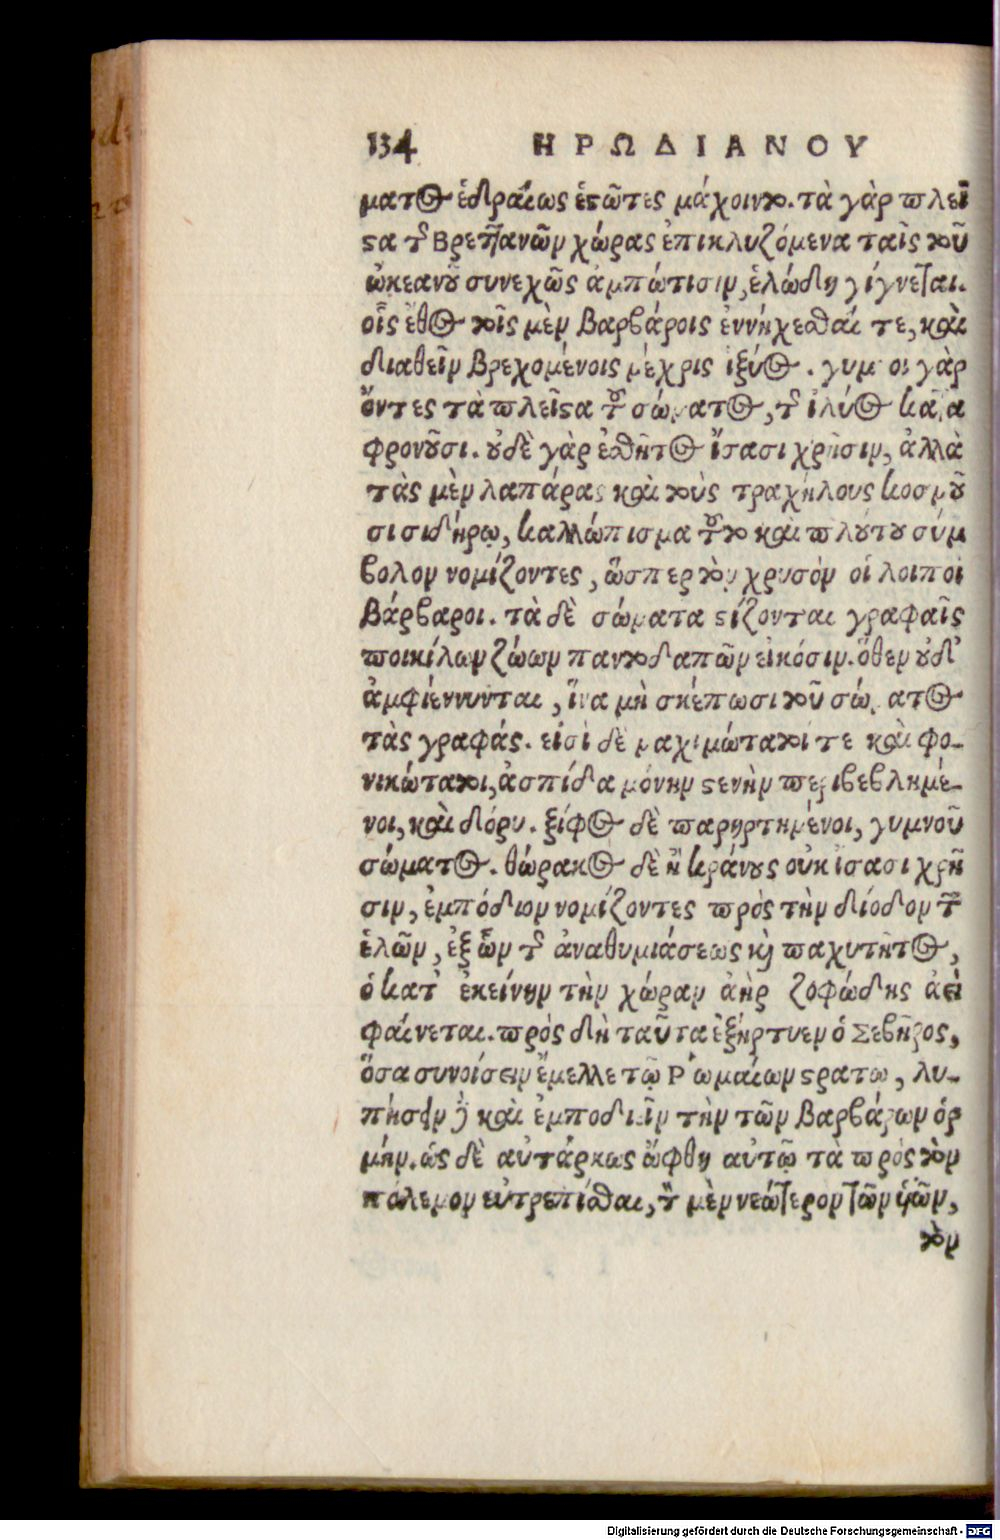 134 ΗΡΩΔΙΑΝΟΥ
ματος ἑδραίως ἑστῶτες μάχοιντο. τὰ γὰρ πλεῖ
στα τῆς Βρεττανῶν χώρας ἐπικλυζόμενα ταῖς τοῦ
ὠκεανοῦ συνεχῶς ἀμπώτισιν, ἑλώδη γίγνεται.
οἷς ἔθος τοῖς μὲν βαρβάροις ἐννήχεσθαί τε, καὶ
διαθεῖν βρεχομένοις μέχρις ἰξύος. γυμνοὶ γὰρ
ὄντες τὰ πλεῖστα τοῦ σώματος, τῆς ἰλύος κατα
φρονοῦσι. οὐδὲ γὰρ ἐσθῆτος ἴσασι χρῆσιν, ἀλλὰ
τὰς μὲν λαπάρας καὶ τοὺς τραχήλους κοσμοῦ
σι σιδήρῳ, καλλώπισμα τοῦτο καὶ πλούτου σύμ
βολον νομίζοντες, ὥσπερ τὸν χρυσὸν οἱ λοιποὶ
βάρβαροι. τὰ δὲ σώματα στίζονται γραφαῖς
ποικίλων ζώων παντοδαπῶν εἰκόσιν. ὅθεν οὐδ'
ἀμφιέννυνται, ἵνα μὴ σκέπωσι τοῦ σώματος
τὰς γραφάς. εἰσὶ δὲ μαχιμώτατοί τε καὶ φο-
νικώτατοι, ἀσπίδα μόνην στενὴν περιβεβλημέ-
νοι, καὶ δόρυ. ξίφος δὲ παρηρτημένοι, γυμνοῦ
σώματος. θώρακος δὲ ἢ κράνους οὐκ ἴσασι χρῆ
σιν, ἐμπόδιον νομίζοντες πρὸς τὴν δίοδον τῶν
ἑλῶν, ἐξ ὧν τῆς ἀναθυμιάσεως καὶ παχύτητος,
ὁ κατ' ἐκείνην τὴν χώραν ἀὴρ ζοφώδης ἀεὶ
φαίνεται. πρὸς δὴ ταῦτα ἐξήρτυεν ὁ Σεβῆρος,
ὅσα συνοίσειν ἔμελλε τῷ Ῥωμαίων στρατῷ, λυ-
πήσειν δὲ καὶ ἐμποδιεῖν τὴν τῶν βαρβάρων ὁρ
μήν. ὡς δὲ αὐτάρκως ὤφθη αὐτῷ τὰ πρὸς τὸν
πόλεμον εὐτρεπίσθαι, τὸν μὲν νεώτερον τῶν υἱῶν,
τὸν
Digitalisierung gefördert durch die Deutsche Forschungsgemeinschaft - DFG